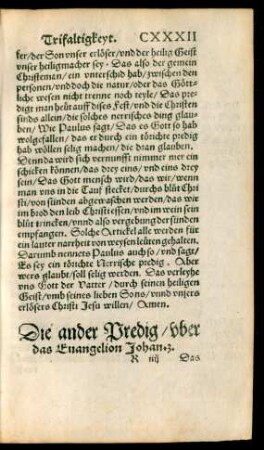 Trifaltigkeyt. CXXXII
ser/der Son vnser erlöser/vnd der heilig Geist
vnser heiligmacher sey. Das also der gemein
Christeman/ein vnterschid hab/zwischen den
personen/vnd doch die natur/oder das Gött-
liche wesen nicht trenne noch teyle/ Das pre-
digt man heüt auff dises Fest/vnd die Christen
sinds allein/die solches nerrisches ding glau-
ben/Wie Paulus sagt/Das es Gott so hab
wolgefallen/das er durch ein törichte predig
hab wöllen selig machen/die dran glauben.
Denn da wird sich vernunfft nimmer mer ein
schicken können/das drey eins/vnd eins drey
sein/Das Gott mensch wird/das wir/wenn
man vns in die Tauf stecket/durchs blůt Chri-
sti/von sünden abgewaschen werden/das wir
im brod den leib Christi essen/vnd im wein sein
blůt trincken/vnnd also vergebung der sünden
empfangen. Solche Artickel alle werden für
ein lauter narrheit von weysen leüten gehalten.
Darumb nennets Paulus auch so/vnd sagt/
Es sey ein törichte Nerrische predig. Aber
wers glaubt/soll selig werden. Das verleyhe
vns Gott der Vatter/durch seinen heiligen
Geist/vmb seines lieben Sons/vnnd vnsers
erlösers Christi Jesu willen/Amen.
Die ander Predig/vber
das Euangelion Johan. 3.
R iiij Das